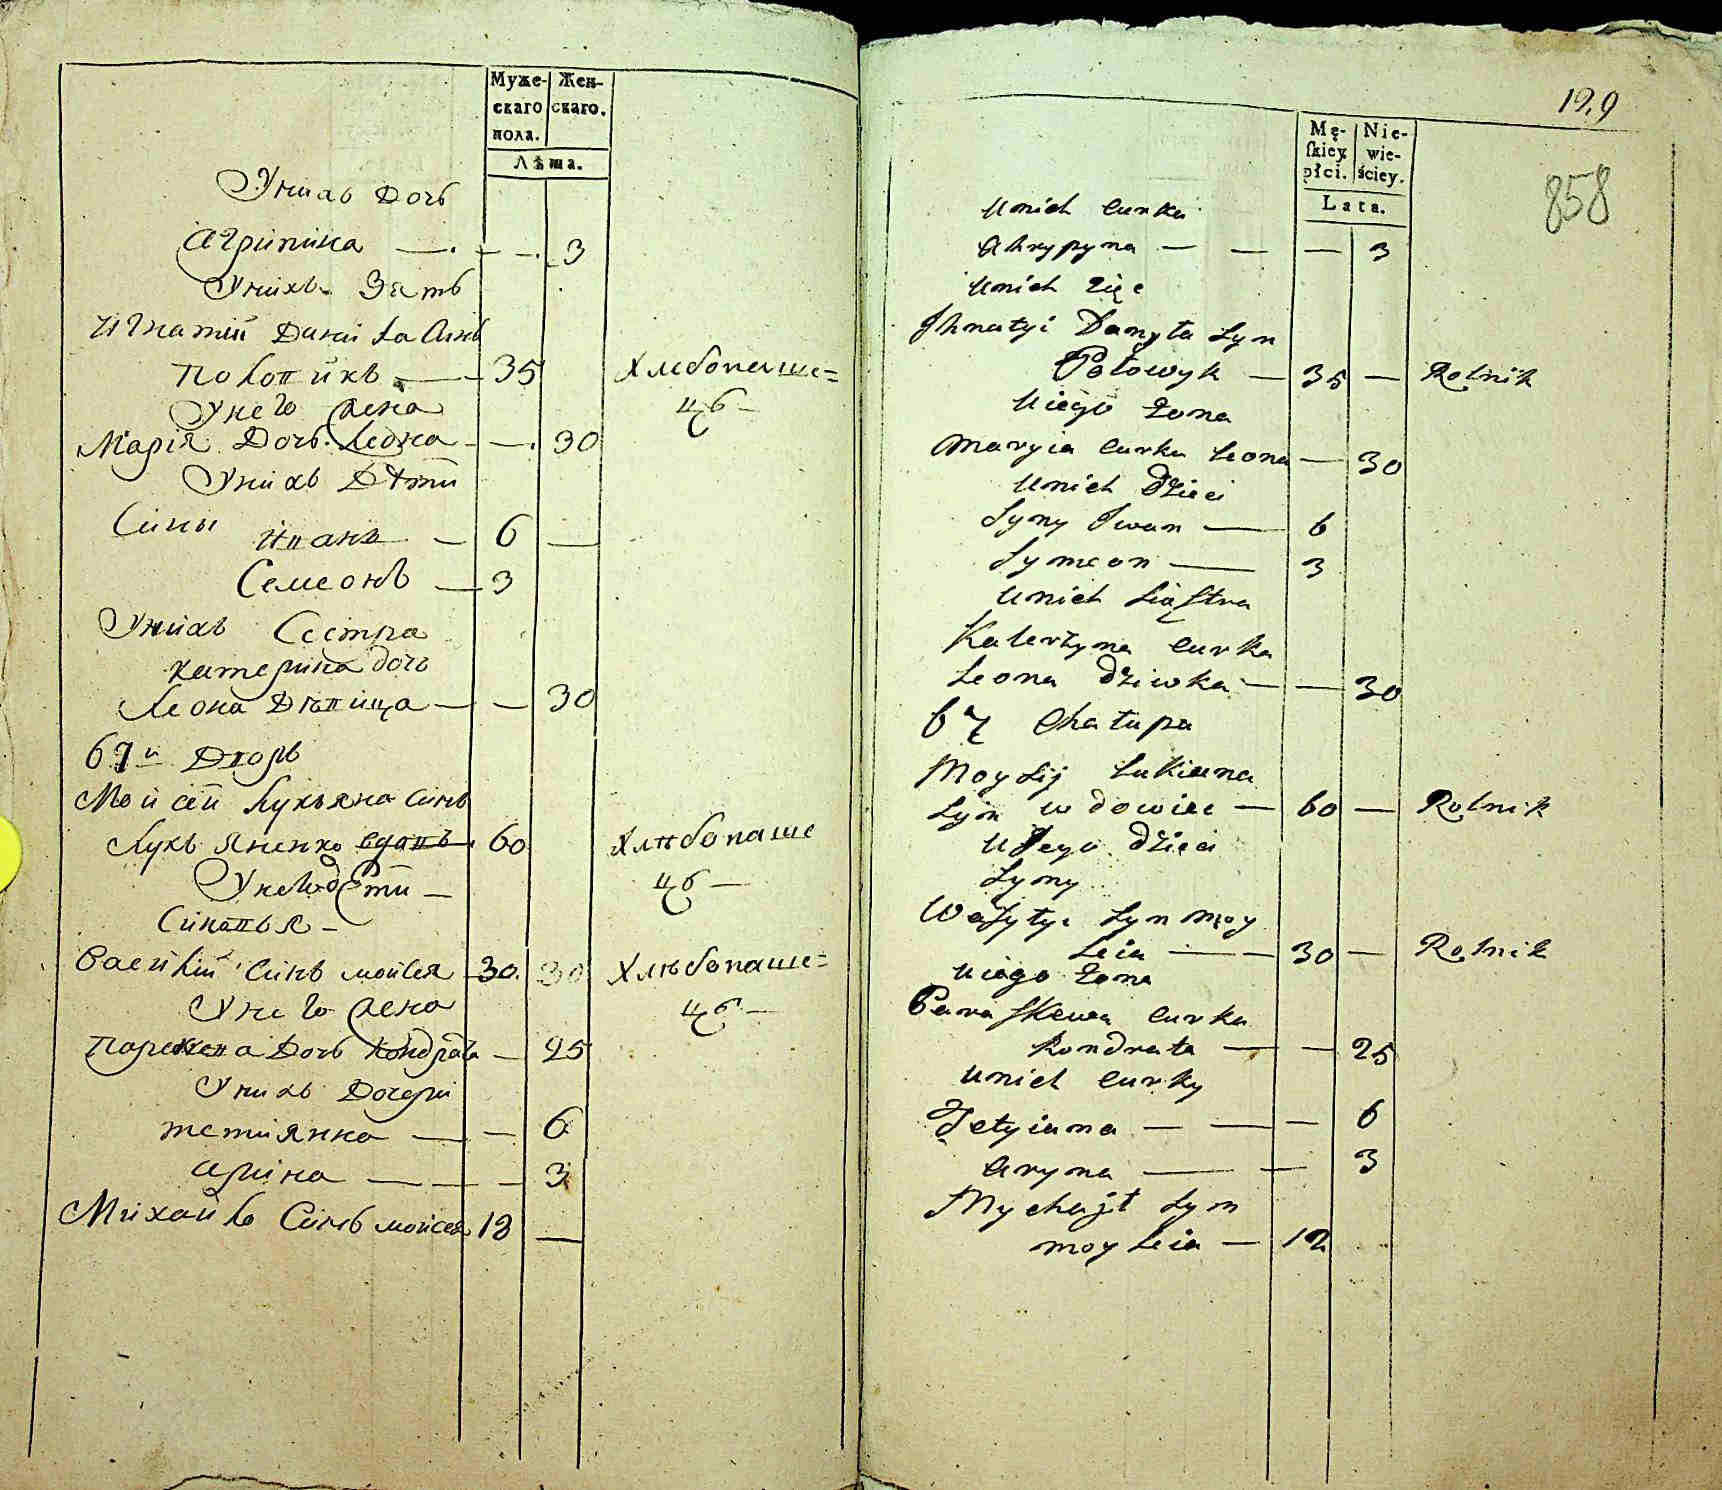 Муже-
скаго
пола.
Жен-
скаго.
Лѣта.
Унихъ Дочь
Агрипина — . — — . 3
Унихъ Зять
Игнатій Данила Синъ
Половикъ — 35 Хлебопаше=
цъ —
Унего Жена
Марія Дочь Леона — — . 30
Унихъ Дѣти
Сины Иванъ — 6 —
Семеонъ — 3
Унихъ Сестра
Катерина дочь
Леона Дѣвица — — 30
67й Дворъ
Мойсей Лукьяна Синъ
Лукьяненко вдовъ 60 Хлѣбопаше
цъ —
Унего дѣти —
Синовья —
Василій Синъ мойсея 30. 30 Хлѣбопаше=
цъ —
Унего Жена
Парасева Дочь Кондрата — 25
Унихъ Дочери
тетиянна — — 6
арина — — — 3
Михайло Синъ мойсея 12 —
12,9
858
Mę-
skiey
płci.
Nie-
wie-
ściey.
Lata.
Unich Curka
Ahrypyna — — — 3
Unich Zięć
Jhnatyi Danyła Syn
Połowyk — 35 — Rolnik
Uiego Żona
Maryia Curka Leona — 30
Unich Dzieci
Syny Jwan — 6
Symeon — 3
Unich Siostra
Kateryna Curka
Leona Dziwka — — 30
67 Chałupa
Moysij Łukiana
Syn wdowiec — 60 — Rolnik
Ujego Dzieci
Syny
Wasytyi Syn Moy
seia — — 30 — Rolnik
Uiego Żona
Paraskewa Curka
Kondrata — — 25
Unich Curky
Tetyiana — — — 6
Aryna — — 3
Mychajł Syn
moyseia — 12